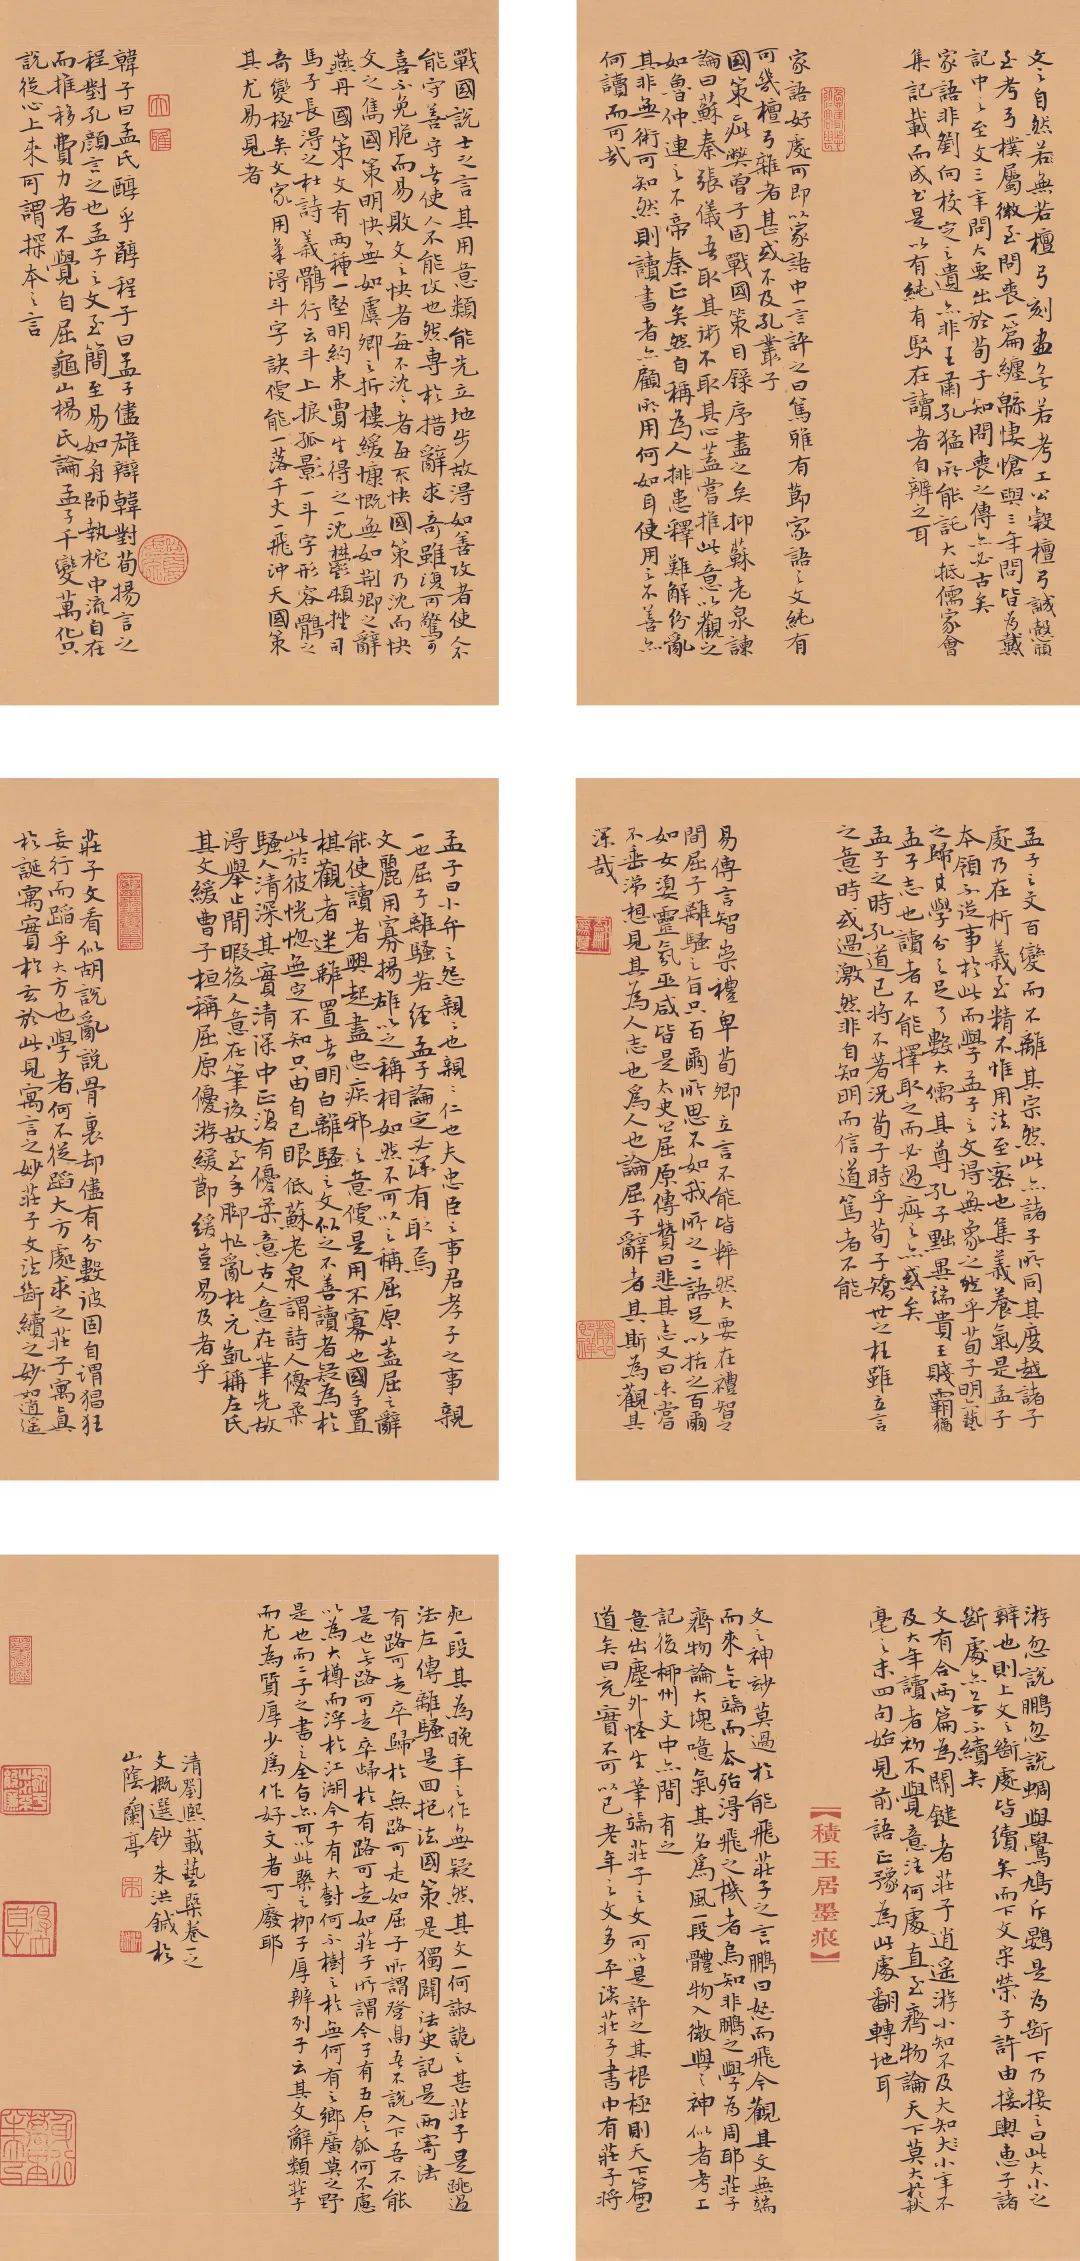 文之自然若無若檀弓刻畫無若考工公穀檀弓誠愨頎
至考弓樸屬微至問喪一篇纏緜悽愴與三年問皆為戴
記中之至文三年問大要出於荀子知問喪之傳亦必古矣
家語非劉向校定之遺亦非王肅孔猛所能託大抵儒家會
集記載而成書是以有純有駁在讀者自辨之耳
家語好處可即以家語中一言許之曰篤雅有節家語之文純有
可幾檀弓雜者甚或不及孔叢子
國策疵弊曾子固戰國策目錄序盡之矣抑蘇老泉諫
論曰蘇秦張儀吾取其術不取其心蓋嘗推此意以觀之
如魯仲連之不帝秦正矣然自稱為人排患釋難解紛亂
其非無術可知然則讀書者亦顧所用何如耳使用之不善亦
何讀而可哉
戰國說士之言其用意類能先立地步故得如善攻者使人不
能守善守者使人不能攻也然專於措辭求奇雖復可驚可
喜不免脆而易敗文之快者每不沈沈者每不快國策乃沈而快
文之雋國策明快無如虞卿之折樓緩慷慨無如荆卿之辭
燕丹國策文有兩種一堅明約束賈生得之一沈鬱頓挫司
馬子長得之杜詩義鶻行云斗上捩孤影一斗字形容鶻之
奇變極矣文家用筆得斗字訣便能一落千丈一飛沖天國策
其尤易見者
韓子曰孟氏醇乎醇程子曰孟子儘雄辯韓對荀揚言之
程對孔顏言之也孟子之文至簡至易如舟師執柁中流自在
而推移費力者不覺自屈龜山楊氏論孟子千變萬化只
說從心上來可謂探本之言
孟子之文百變而不離其宗然此亦諸子所同其度越諸子
處乃在析義至精不惟用法至密也集義養氣是孟子
本領不從事於此而學孟子之文得無象之然乎荀子明六藝
之歸其學分之足了數大儒其尊孔子黜異端貴王賤霸猶
孟子志也讀者不能擇取之而必過疵之亦惑矣
孟子之時孔道已將不著況荀子時乎荀子矯世之枉雖立言
之意時或過激然非自知明而信道篤者不能
易傳言智崇禮卑荀卿立言不能皆粹然大要在禮智之
間屈子離騷之旨只百爾所思不如我所之二語足以括之百爾
如女嬃靈氛巫咸皆是太史公屈原傳贊曰悲其志又曰未嘗
不垂涕想見其為人志也為人也論屈子辭者其斯為觀其
深哉
孟子曰小弁之怨親親也親親仁也夫忠臣之事君孝子之事親
一也屈子離騷若經孟子論定必深有取焉
文麗用寡揚雄以之稱相如然不可以之稱屈原蓋屈之辭
能使讀者興起盡忠疾邪之意便是用不寡也國手置
棋觀者迷離置者明白離騷之文似之不善讀者疑為於
此於彼恍惚無定不知只由自己眼低蘇老泉謂詩人優柔
騷人清深其實清深中正復有優柔意古人意在筆先故
得舉止閒暇後人意在筆後故至手腳忙亂杜元凱稱左氏
其文緩曹子桓稱屈原優游緩節緩豈易及者乎
莊子文看似胡說亂說骨裏却儘有分數彼固自謂猖狂
妄行而蹈乎大方也學者何不從蹈大方處求之莊子寓真
於誕寓實於玄於此見寓言之妙莊子文法斷續之妙如逍遙
游忽說鵬忽說蜩與鷽鳩斥鷃是為斷下乃接之曰此大小之
辯也則上文之斷處皆續矣而下文宋榮子許由接輿惠子諸
斷處亦無不續矣
文有合兩篇為關鍵者莊子逍遙游小知不及大知小年不
及大年讀者初不覺意注何處直至齊物論天下莫大於秋
毫之末四句始見前語正豫為此處翻轉地耳
【積玉居墨痕】
文之神妙莫過於能飛莊子之言鵬曰怒而飛今觀其文無端
而來無端而去殆得飛之機者烏知非鵬之學為周耶莊子
齊物論大塊噫氣其名為風一段體物入微與之神似者考工
記後柳州文中亦間有之
意出塵外怪生筆端莊子之文可以是許之其根極則天下篇已
道矣曰充實不可以已老年之文多平淡莊子書中有莊子將
死一段其為晚年之作無疑然其文一何諔詭之甚莊子是跳過
法左傳離騷是回抱法國策是獨闢法史記是兩寄法
有路可走卒歸於無路可走如屈子所謂登高吾不說入下吾不能
是也無路可走卒歸於有路可走如莊子所謂今子有五石之瓠何不慮
以為大樽而浮於江湖今子有大樹何不樹之於無何有之鄉廣莫之野
是也而二子之書之全旨亦可以此槩之柳子厚辨列子云其文辭類莊子
而尤為質厚少為作好文者可廢耶
清劉熙載藝槩卷一之
文概選鈔 朱洪鋮於
山陰蘭亭